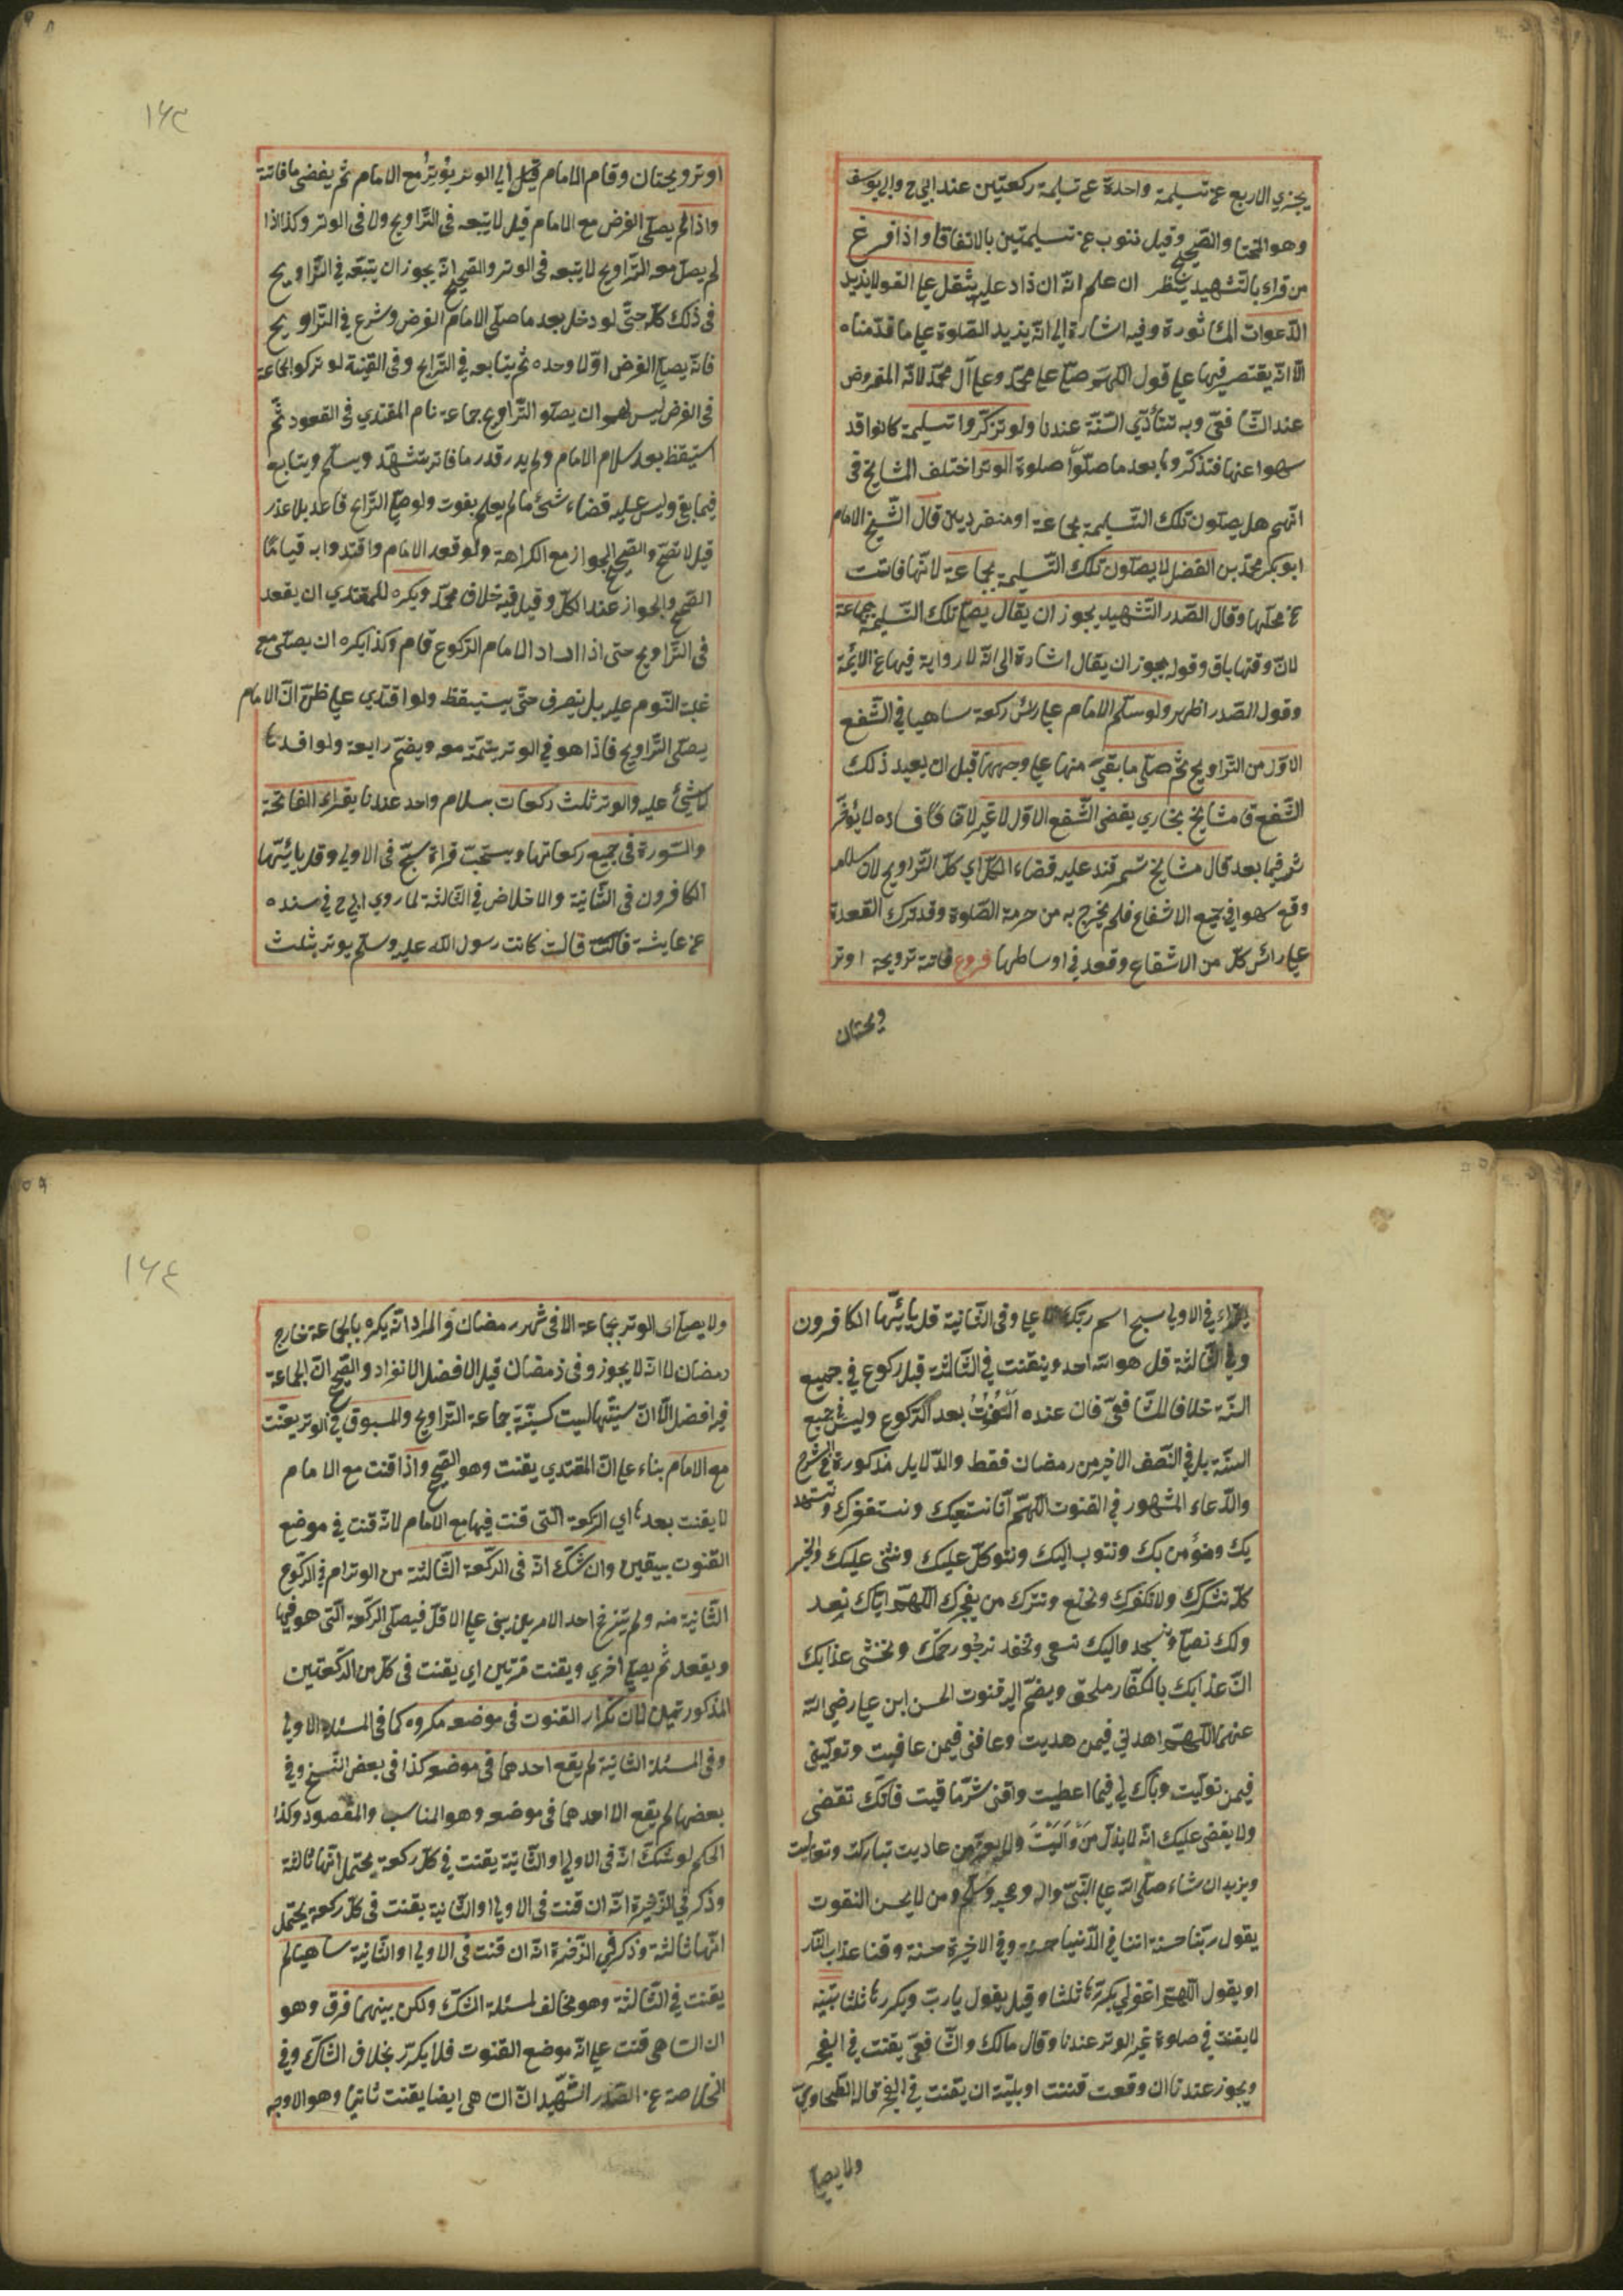 يجزي الاربع عن تسليمة واحدة عن تسليمة ركعتين عند ابي ح وابي يوسف
وهو المختار والصحيح وقيل ننوب عن تسليمتين بالاتفاق واذا فرغ
من قراءة التشهد ينظر ان علم انه ان زاد عليه يثقل على القوم لا يزيد
الدعوات المأثورة وفيه اشارة الى انه يزيد الصلوة على ما قدمناه
الا انه يقتصر فيها على قول اللهم صل على محمد وعلى آل محمد لانه المفروض
عند الشافعي وبه تتأدي السنة عندنا ولو تذكروا تسليمة كانوا قد
سهوا عنها فتذكروها بعد ما صلوا صلوة الوتر اختلف المشايخ في
انهم هل يصلون تلك التسليمة بجماعة او منفردين قال الشيخ الامام
ابو بكر محمد بن الفضل لا يصلون تلك التسليمة بجماعة لانها فاتت
عن محلها وقال الصدر الشهيد يجوز ان يقال يصلي تلك التسليمة جماعة
لان وقتها باق وقوله يجوز ان يقال اشارة الى انه لا رواية فيها عن الائمة
وقول الصدر اظهر ولو سلم الامام على رأس ركعة ساهيا في الشفع
الاول من التراويح ثم صلى ما بقي منها على وجهها قبل ان يعيد ذلك
الشفع قال مشايخ بخاري يقضي الشفع الاول لا غير لان فساده لا يؤثر
فيما بعد قال مشايخ سمرقند عليه قضاء الكل اي كل التراويح لان سلامه
وقع سهوا في جميع الاشفاع فلم يخرج به من حرمة الصلوة وقد ترك القعدة
على رأس كل من الاشفاع وقعد في اوساطها فروع فاتته ترويحة اوتر
ويحتان
١٦٣
اوترويحتان وقام الامام الى الوتر يوتر مع الامام ثم يقضي ما فاتته
واذا لم يصلى الفرض مع الامام قيل لا يتبعه في التراويح ولا في الوتر وكذا اذا
لم يصل معه التراويح لا يتبعه في الوتر والصحيح انه يجوز ان يتبعه في التراويح
في ذلك كله حتى لو دخل بعد ما صلى الامام الفرض وشرع في التراويح
فانه يصلي الفرض اولا وحده ثم يتابعه في التراويح وفي القنية لو تركوا الجماعة
في الفرض ليس لهم ان يصلوا التراويح جماعة نام المقتدي في القعود ثم
استيقظ بعد سلام الامام ولم يدر قدر ما فاته يتشهد ويسلم ويتابع
فيما بقي وليس عليه قضاء شئ ما لم يعلم بفوت ولو صلى التراويح قاعدا بلا عذر
قيل لا تصح والصحيح الجواز مع الكراهة ولو قعد الامام واقتدوا به قياما
الصحيح والجواز عند الكل وقيل فيه خلاف محمد ويكره للمقتدي ان يقعد
في التراويح حتى اذا اراد الامام الركوع قام وكذا يكره ان يصلى مع
غلبة النوم عليه بل ينصرف حتى يستيقظ ولو اقتدي على ظن ان الامام
يصلي التراويح فاذا هو في الوتر يتمه معه ويضم رابعة ولو افسدها
لا شئ عليه والوتر ثلث ركعات بسلام واحد عندنا يقراء الفاتحة
والسورة في جميع ركعاتها ويستحب قراءة سبح في الاولى وقل يا ايها
الكافرون في الثانية والاخلاص في الثالثة لما روي ابي ح في سنده
عن عايشة قالت كانت رسول الله عليه وسلم يوتر بثلث
يقراء في الاولى سبح اسم ربك الاعلى وفي الثانية قل يا ايها الكافرون
وفي الثالثة قل هو الله احد ويقنت في الثالثة قبل ركوع في جميع
السنة خلافا للشافعي فان عنده القنوت بعد الركوع وليس في جميع
السنة بل في النصف الاخير من رمضان فقط والدلايل مذكورة في الشرح
والدعاء المشهور في القنوت اللهم انا نستعينك ونستغفرك ونستهد
يك ونؤمن بك ونتوب اليك ونتوكل عليك ونثني عليك الخير
كله نشكرك ولا نكفرك ونخلع ونترك من يفجرك اللهم اياك نعبد
ولك نصلي ونسجد واليك نسعى ونحفد نرجو رحمتك ونخشى عذابك
ان عذابك بالكفار ملحق ويضم اليه قنوت الحسن ابن علي رضي الله
عنهما اللهم اهدني فيمن هديت وعافني فيمن عافيت وتولني
فيمن توليت وبارك لي فيما اعطيت وقني شر ما قيت فانك تقضي
ولا يقضى عليك انه لا يذل من واليت ولا يعز من عاديت تباركت وتعاليت
ويزيد ان شاء صلى الله على النبي واله وصحبه وسلم ومن لا يحسن القنوت
يقول ربنا حسنة اتنا في الدنيا حسنة وفي الاخرة حسنة وقنا عذاب النار
او يقول اللهم اغفرلي يكررها ثلثا وقيل يقول يارب ويكررها ثلثا
لا يقنت في صلوة غير الوتر عندنا وقال مالك والشافعي يقنت في الفجر
ويجوز عندنا ان وقعت فتنة او بلية ان يقنت في الفجر قاله الطحاوي
ولا يصلي
١٦٤
ولا يصلى اى الوتر بجماعة الا في شهر رمضان والمراد انه يكره بالجماعة خارج
رمضان لا انه لا يجوز وفي رمضان قيل الافضل الانفراد والصحيح ان الجماعة
فيه افضل الا ان سنيتها ليست كسنية جماعة التراويح والمسبوق في الوتر يقنت
مع الامام بناء على ان المقتدي يقنت وهو الصحيح واذا قنت مع الامام
لا يقنت بعدها اي الركعة التي قنت فيها مع الامام لانه قنت في موضع
القنوت بيقين وان شك انه في الركعة الثالثة من الوتر ام في الركوع
الثانية منه ولم يترجح احد الامرين يبني على الاقل فيصلى الركعة التي هو فيها
ويقعد ثم يصلي اخري ويقنت مرتين اي يقنت في كل من الركعتين
المذكورتين لان تكرار القنوت في موضعه مكروه كما في المسئلة الاولى
وفي المسئلة الثانية لم يقع احدهما في موضعه كذا في بعض النسخ وفي
بعضها لم يقع الا احدهما في موضعه وهو المناسب والمقصود وكذا
الحكم لو شك انه في الاولى او الثانية يقنت في كل ركعة يحتمل انها ثالثة
وذكر في الذخيرة انه ان قنت في الاولى او الثانية يقنت في كل ركعة يحتمل
انها ثالثة وذكر في الذخيرة انه ان قنت في الاولى او الثانية ساهيا لم
يقنت في الثالثة وهو مخالف لمسئلة الشك ولكن بينهما فرق وهو
ان الساهي قنت على انه موضع القنوت فلا يكرر بخلاف الشاك وفي
الخلاصة عن الصدر الشهيد ان الساهي ايضا يقنت ثانيا وهو الاوجه